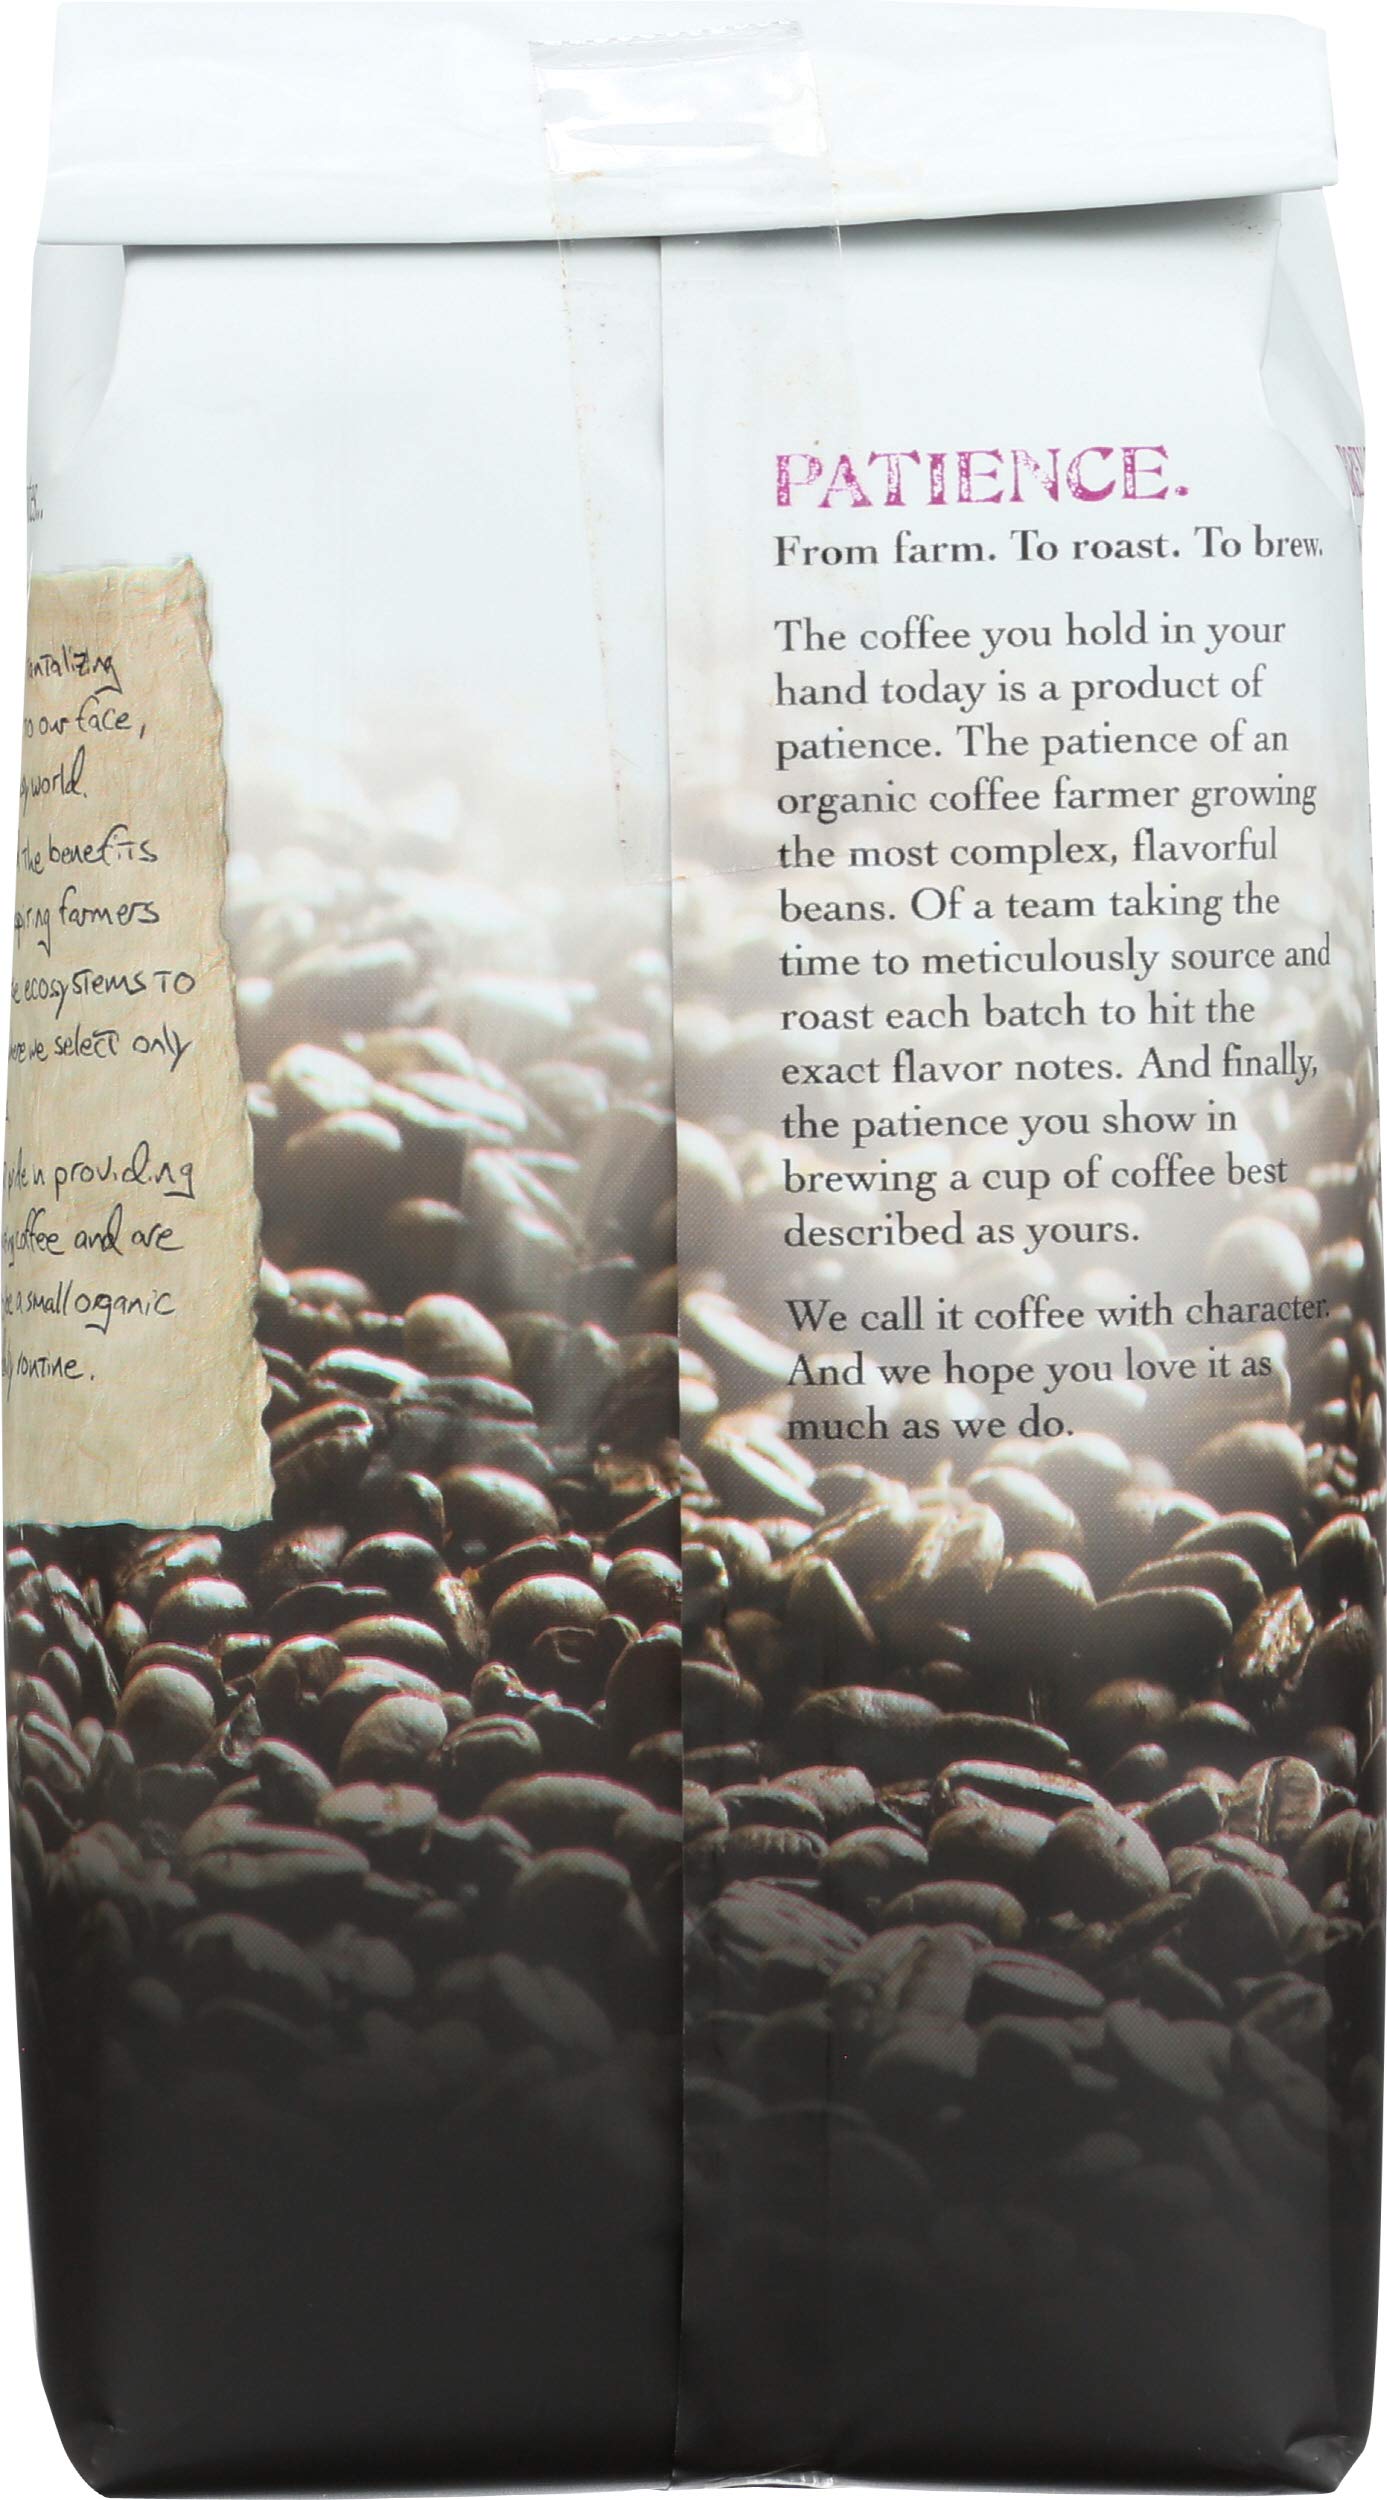 antalizing
our face,
world.
the benefits
farmers
ecosystems to
we select only
in providing
coffee and are
a small organic
routine.
PATIENCE.
From farm. To roast. To brew.
The coffee you hold in your
hand today is a product of
patience. The patience of an
organic coffee farmer growing
the most complex, flavorful
beans. Of a team taking the
time to meticulously source and
roast each batch to hit the
exact flavor notes. And finally,
the patience you show in
brewing a cup of coffee best
described as yours.
We call it coffee with character.
And we hope you love it as
much as we do.